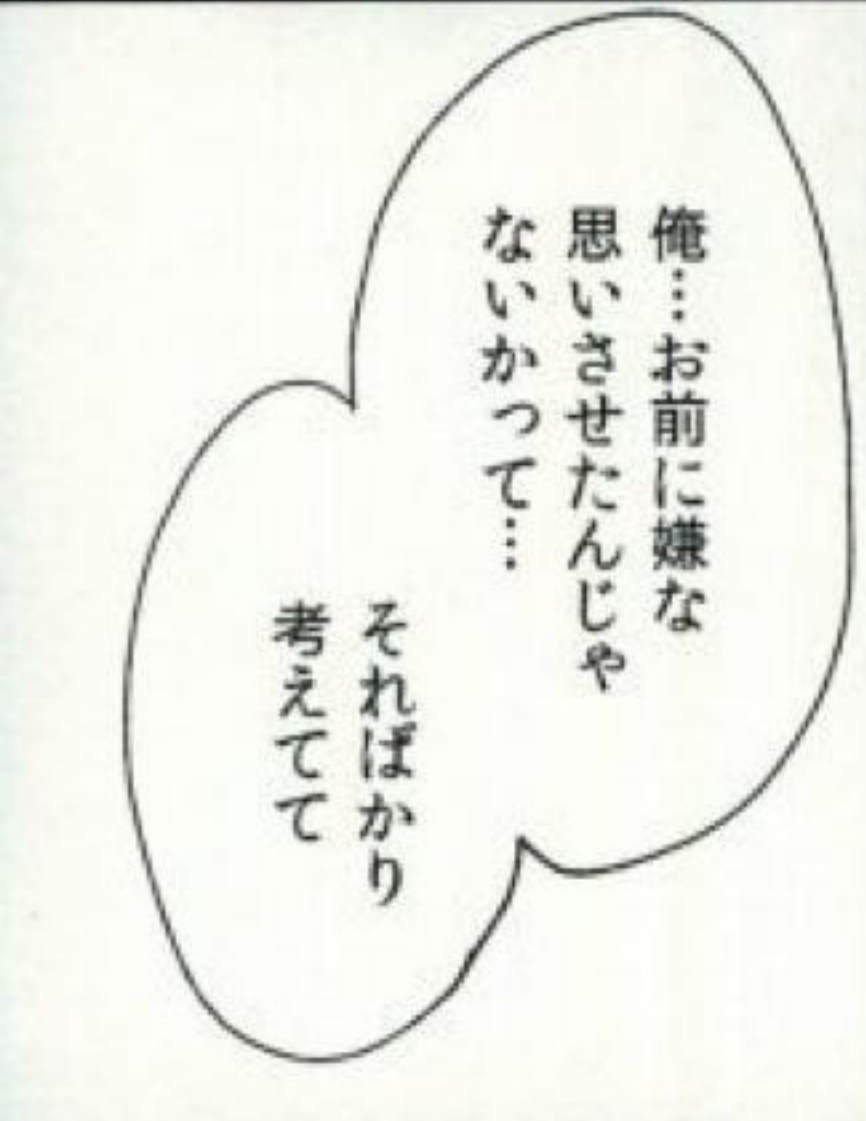 俺…お前に嫌な
思いさせたんじゃ
ないかって…
そればかり
考えてて